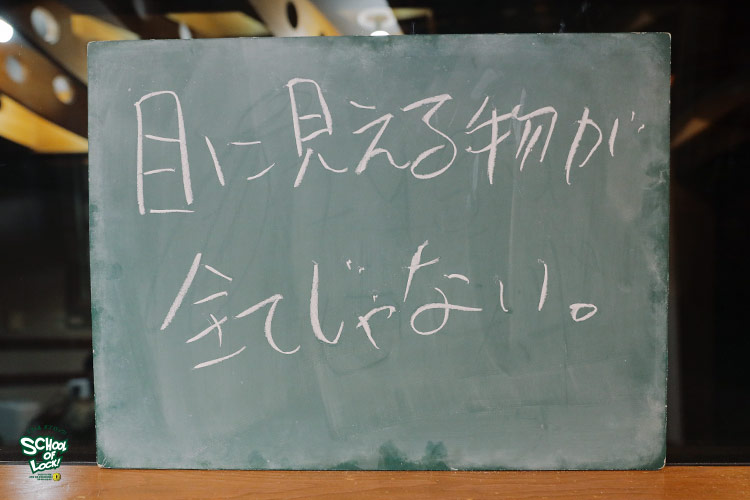 目に見える物が
全てじゃない。
SCHOOL
OF
LOCK!